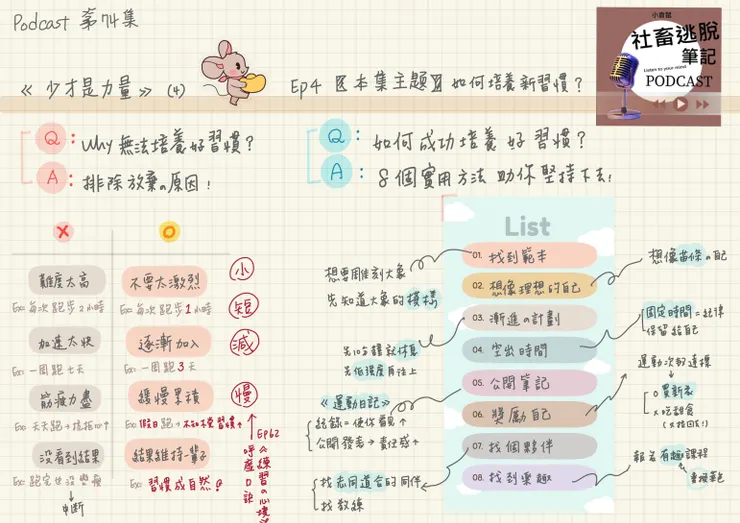 Podcast 第74集
《少才是力量》(4)
Ep4 〖本集主題〗如何培養新習慣?
小倉鼠
社畜逃脫
筆記
Listen to your mind
PODCAST
Q: Why 無法培養好習慣?
A: 排除放棄の原因!
Q: 如何成功培養好習慣?
A: 8個實用方法 助你堅持下去!
X
O
難度太高
不要太激烈
小
Ex: 每次跑步2小時
Ex: 每次跑步1小時
短
加速太快
逐漸加入
減
Ex: 一周跑七天
Ex: 一周跑3天
筋疲力盡
緩慢累積
慢
Ex: 天天跑→
Ex: 假日跑→不知不覺習慣↑
沒看到結果
結果維持一輩子
Ex: 跑完
Ex: 習慣成自然
中斷
Ep62
呼應口訣
List
01. 找到範本
02. 想像理想的自己
03. 漸進の計劃
04. 空出時間
05. 公開筆記
06. 獎勵自己
07. 找個夥伴
08. 找到樂趣
想要雕刻大象
先知道大象的模樣
先10分鐘就休息
先低強度再往上
《運動日記》
紀錄=使你客觀↑
公開發表→責任感↑
找志同道合的同伴
找教練
想像苗條の自己
固定時間=紀律
保留給自己
運動次數達標
O 買新衣
X 吃甜食
報名有趣課程